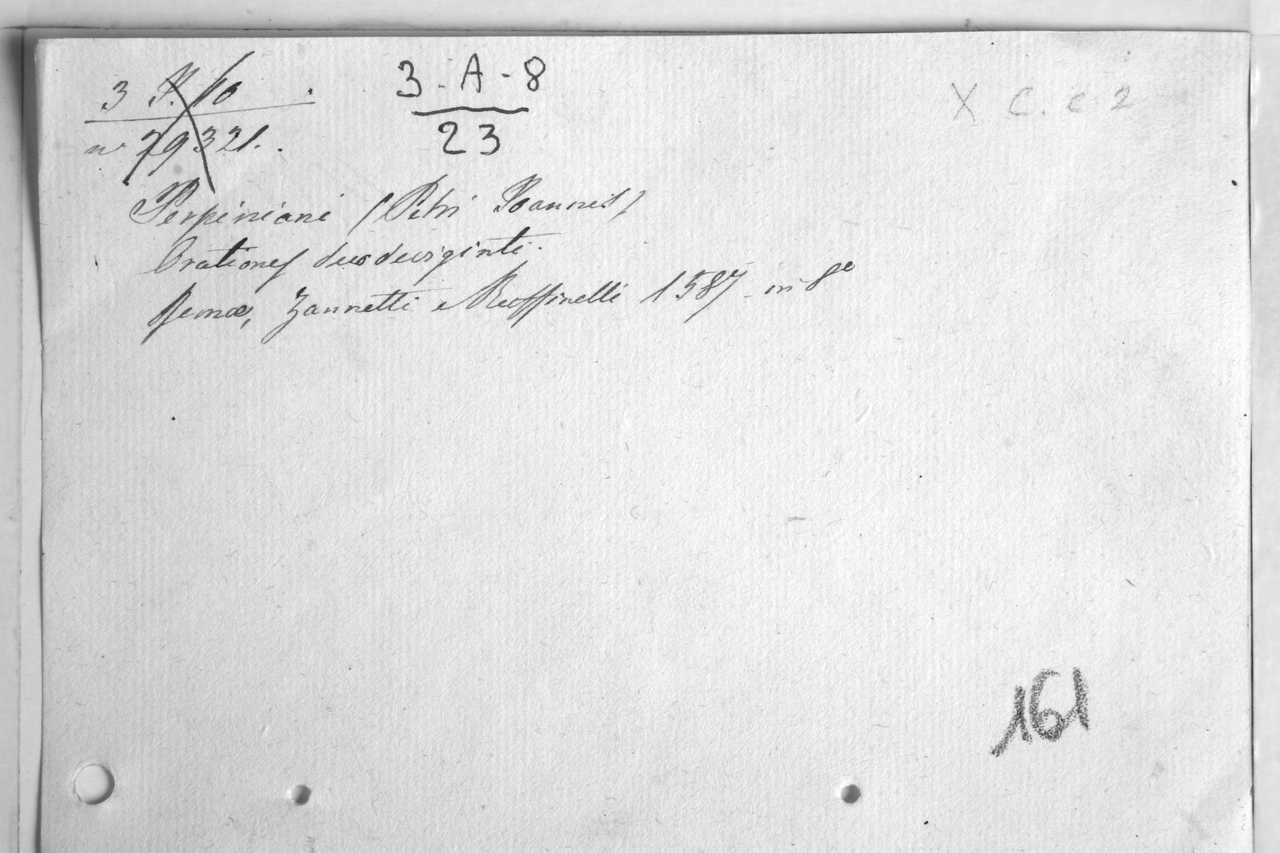 3 10
3-A-8
23
X C. c 2
n° 29321.
Perpiniani (Petri Joannis)
Orationes duodeviginti.
Romæ, Zannetti e Ruffinelli 1587 in 8°
161